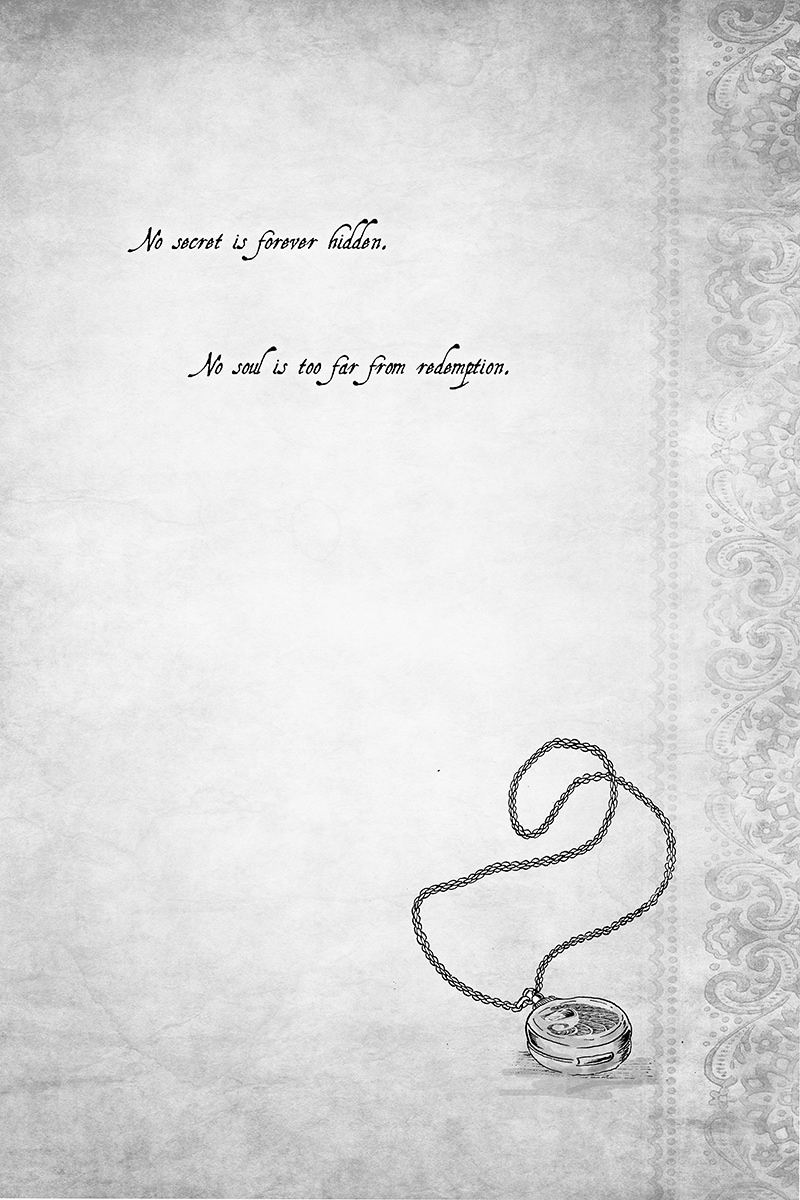 No secret is forever hidden.
No soul is too far from redemption.